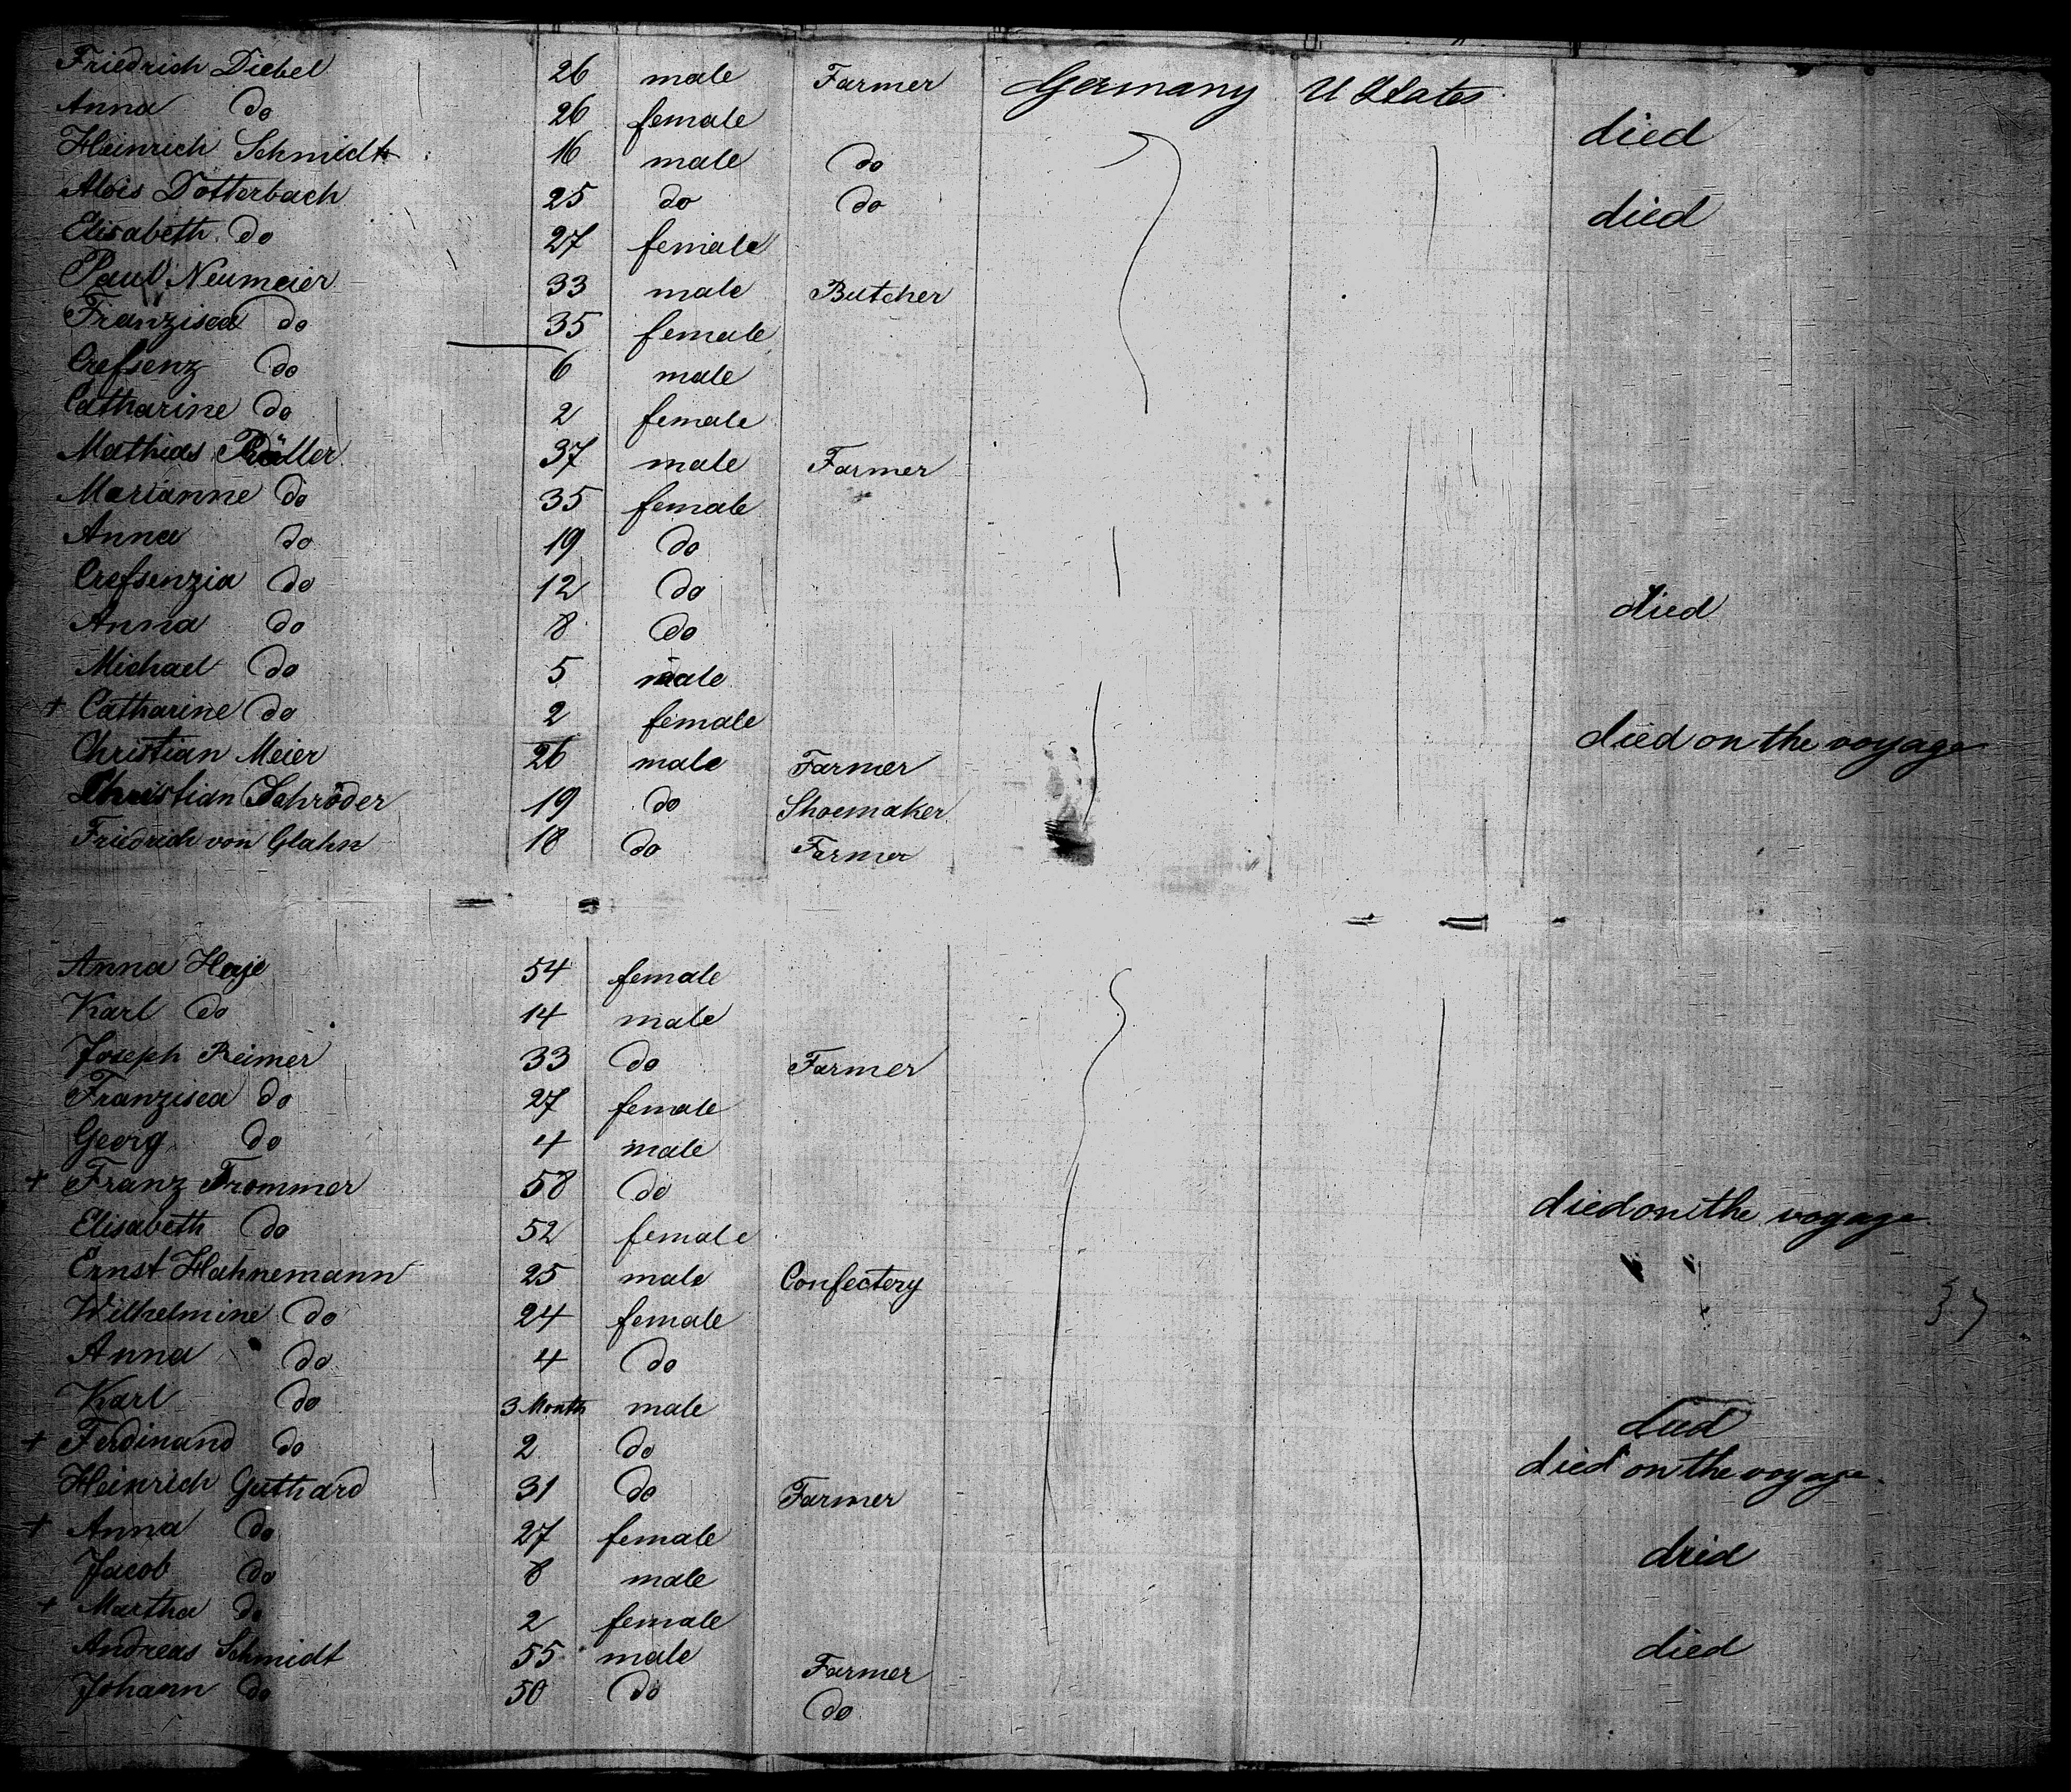 Friedrich Diebel 26 male Farmer Germany U States
Anna do 26 female died
Heinrich Schmidt 16 male do
Alois Dotterbach 25 do do died
Elisabeth do 27 female
Paul Neumeier 33 male Butcher
Franzisca do 35 female
Crefsenz do 6 male
Catharine do 2 female
Mathias 37 male Farmer
Marianne do 35 female
Anna do 19 do
Crefsenzia do 12 do
Anna do 8 do died
Michael do 5 male
+ Catharine do 2 female died on the voyage
Christian Meier 26 male Farmer
Christian Schröder 19 do Shoemaker
Friedrich von Glahn 18 do Farmer
Anna Haje 54 female
Karl do 14 male
Joseph Reimer 33 do Farmer
Franzisca do 27 female
Georg do 4 male
+ Franz Frommer 58 do died on the voyage
Elisabeth do 52 female
Ernst Hahnemann 25 male Confectery
Wilhelmine do 24 female
Anna do 4 do
Karl do 3 Month male died
+ Ferdinand do 2 do died on the voyage
Heinrich Guthard 31 do Farmer
+ Anna do 27 female died
Jacob do 8 male
+ Martha do 2 female died
Andreas Schmidt 55 male Farmer
Johann do 50 do do